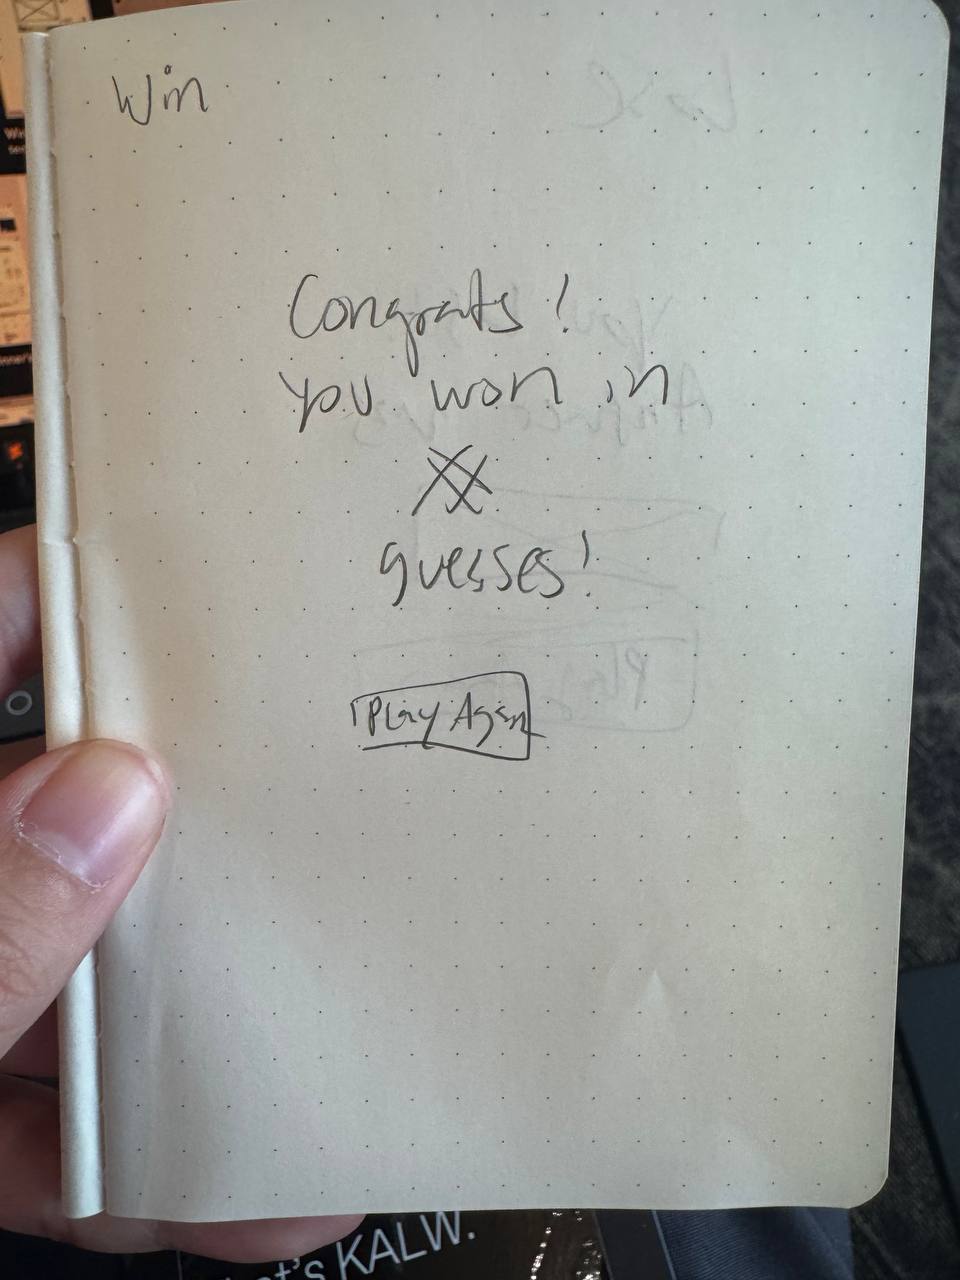 Win
Congrats!
You won in
XX
guesses!
Play Again
's KALW.